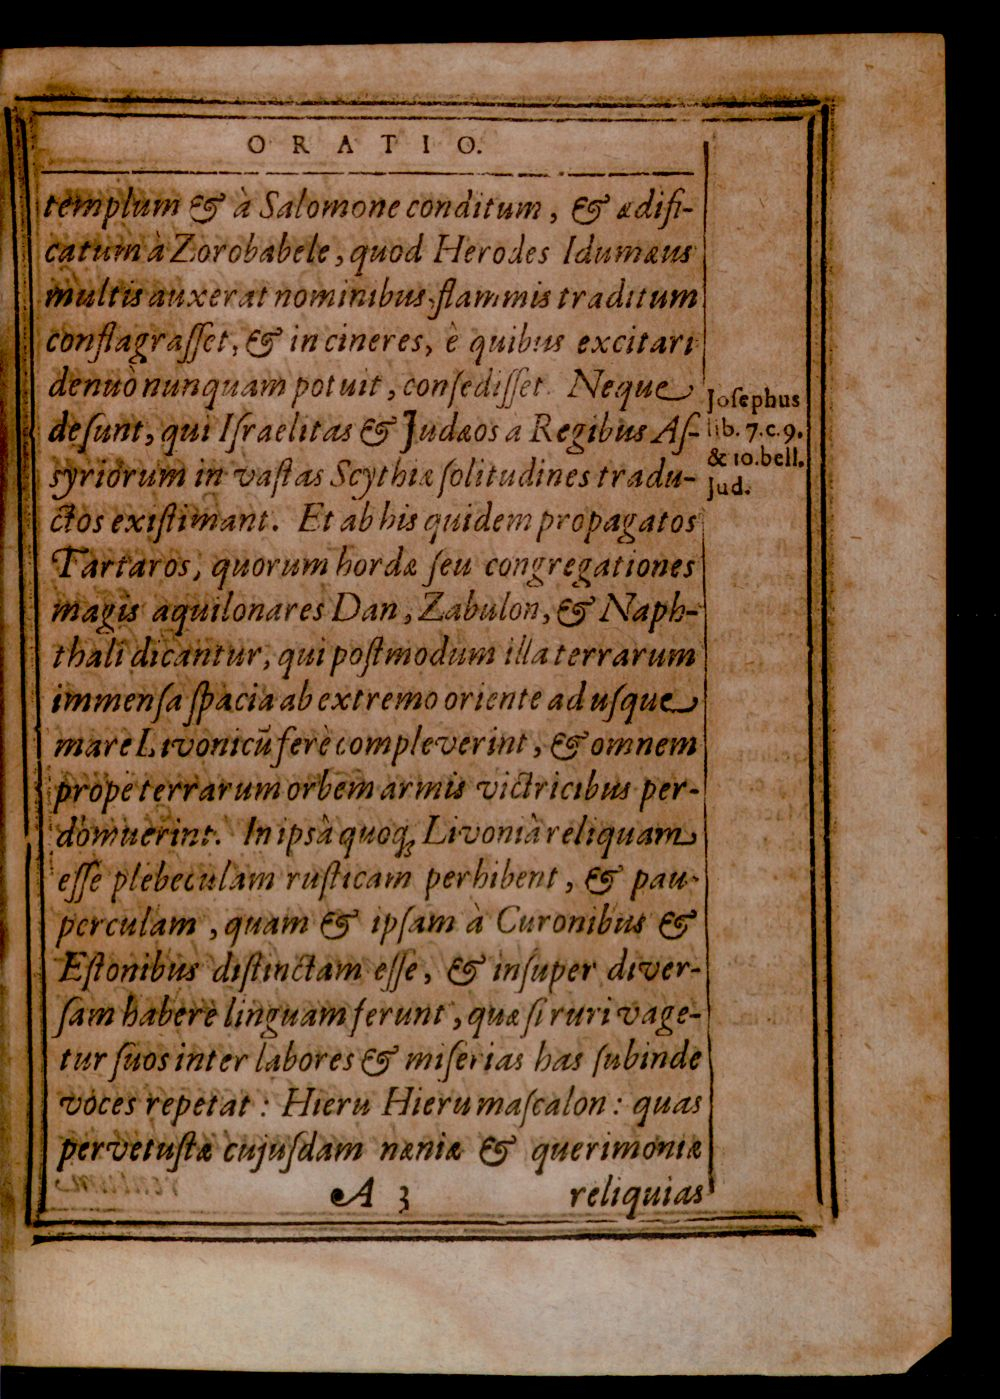 ORATIO.
templum & à Salomone conditum, & ædifi-
catum à Zorobabele, quod Herodes Idumæus
multis auxerat nominibus, flammis traditum
conflagraſſet, & in cineres, è quibus excitari
denuò nunquam potuit, conſediſſet. Neque
deſunt, qui Iſraelitas & Judæos a Regibus Aſ-
ſyriorum in vaſtas Scythiæ ſolitudines tradu-
ctos exiſtimant. Et ab his quidem propagatos
Tartaros, quorum hordæ ſeu congregationes
magis aquilonares Dan, Zabulon, & Naph-
thali dicantur, qui poſtmodum illa terrarum
immenſa ſpacia ab extremo oriente ad uſque
mare Livonicũ ferè compleverint, & omnem
prope terrarum orbem armis victricibus per-
domuerint. In ipsà quoq; Livoniâ reliquam
eſſe plebeculam ruſticam perhibent, & pau-
perculam, quam & ipſam à Curonibus &
Eſtonibus diſtinctam eſſe, & inſuper diver-
ſam habere linguam ferunt, quæ ſi ruri vage-
tur ſuos inter labores & miſerias has ſubinde
voces repetat: Hieru Hieru maſcalon: quas
pervetuſtæ cujuſdam næniæ & querimoniæ
A 3 reliquias
Joſephus
lib. 7. c. 9.
& 10. bell.
Jud.